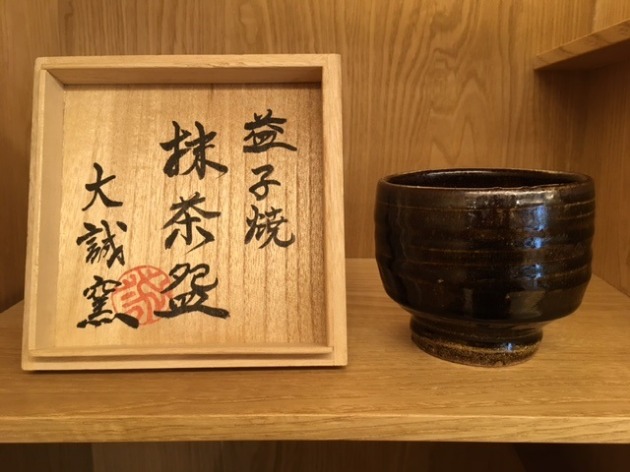 益子焼
抹茶盌
大誠窯
誠